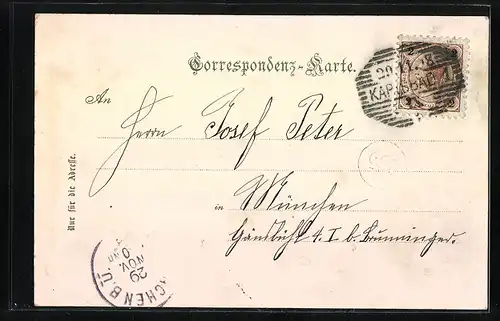 Correspondenz-Karte.
An
Herrn Josef Peter
in München
4. I b. Brunninger.
Nur für die Adresse.
29
KARLSBAD
29
NOV.
CHEN B.Ü.